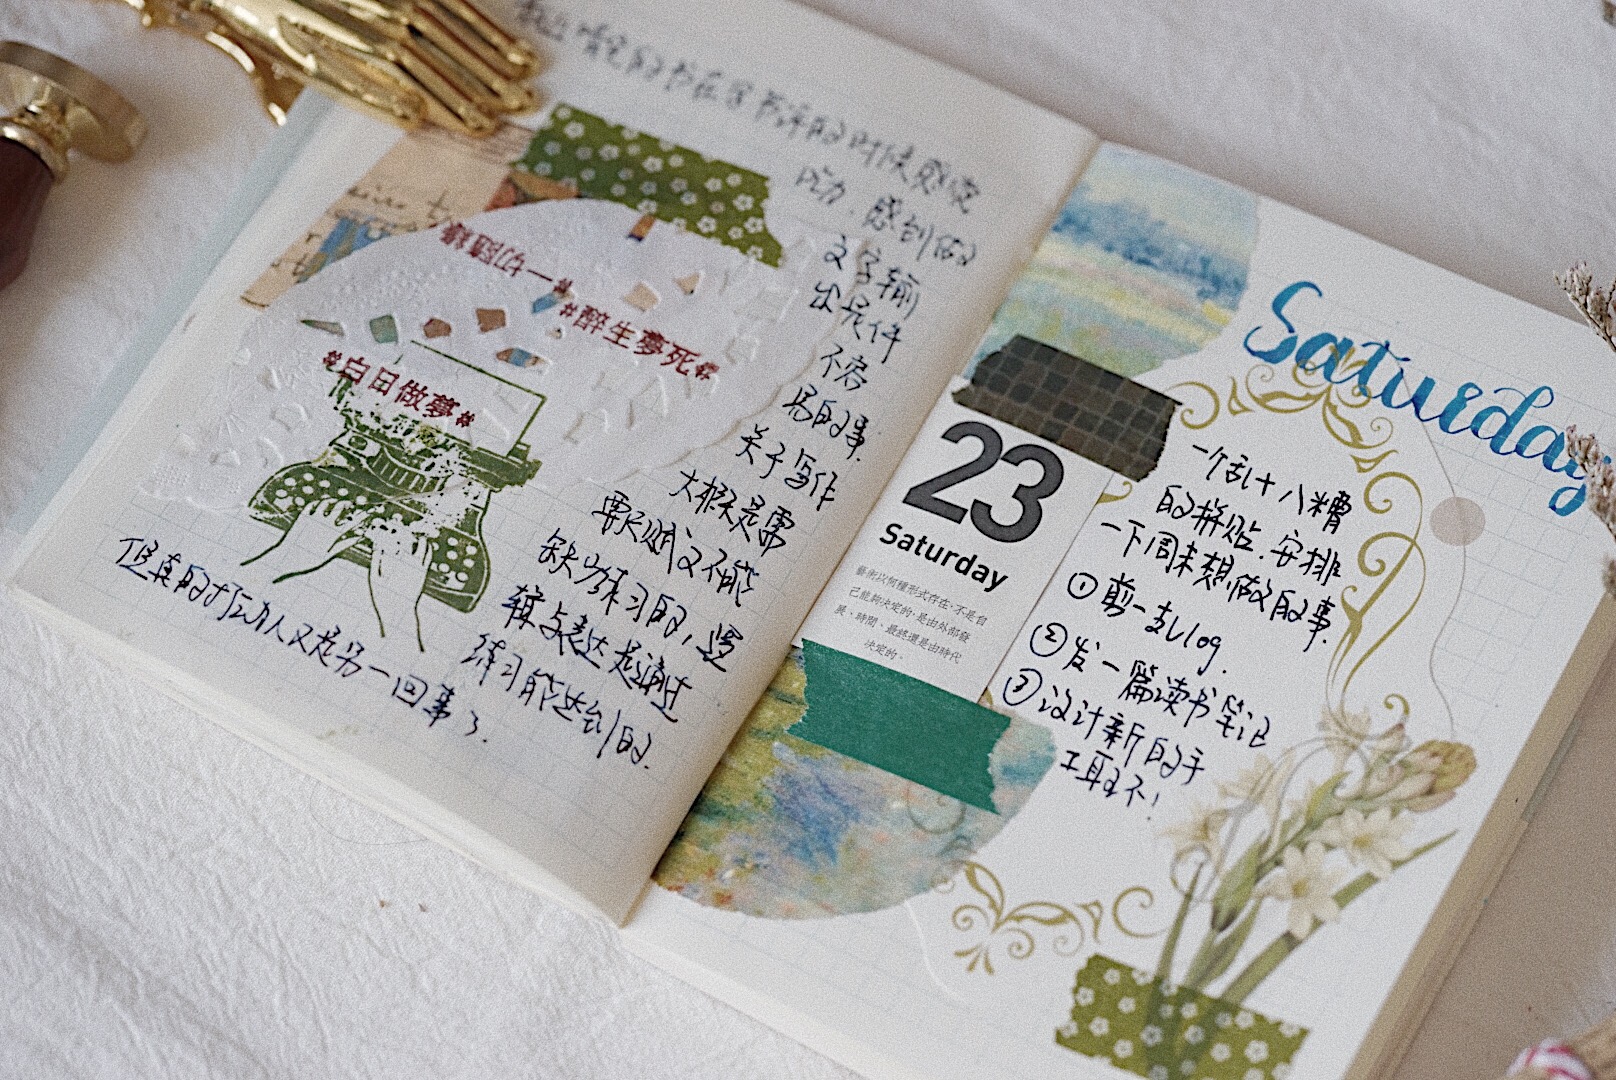 的书在写书评的时候感觉
吃力.感到做
文字输
出是件
不容
易的事.
关于写作
大概是需
要天赋又不能
缺少练习的,逻
辑与表达是通过
练习能达到的.
但真的打动人又是另一回事了.
#一切隨緣
#醉生夢死#
#白日做夢#
Saturday
23
Saturday
藝術以何種形式存在,不是自
己能夠決定的,是由外部發
展、時間、最終還是由時代
決定的。
一个乱十八糟
的拼贴.安排
一下周末想做的事.
①剪一支vlog.
②发一篇读书笔记
③设计新的手
工耳环!